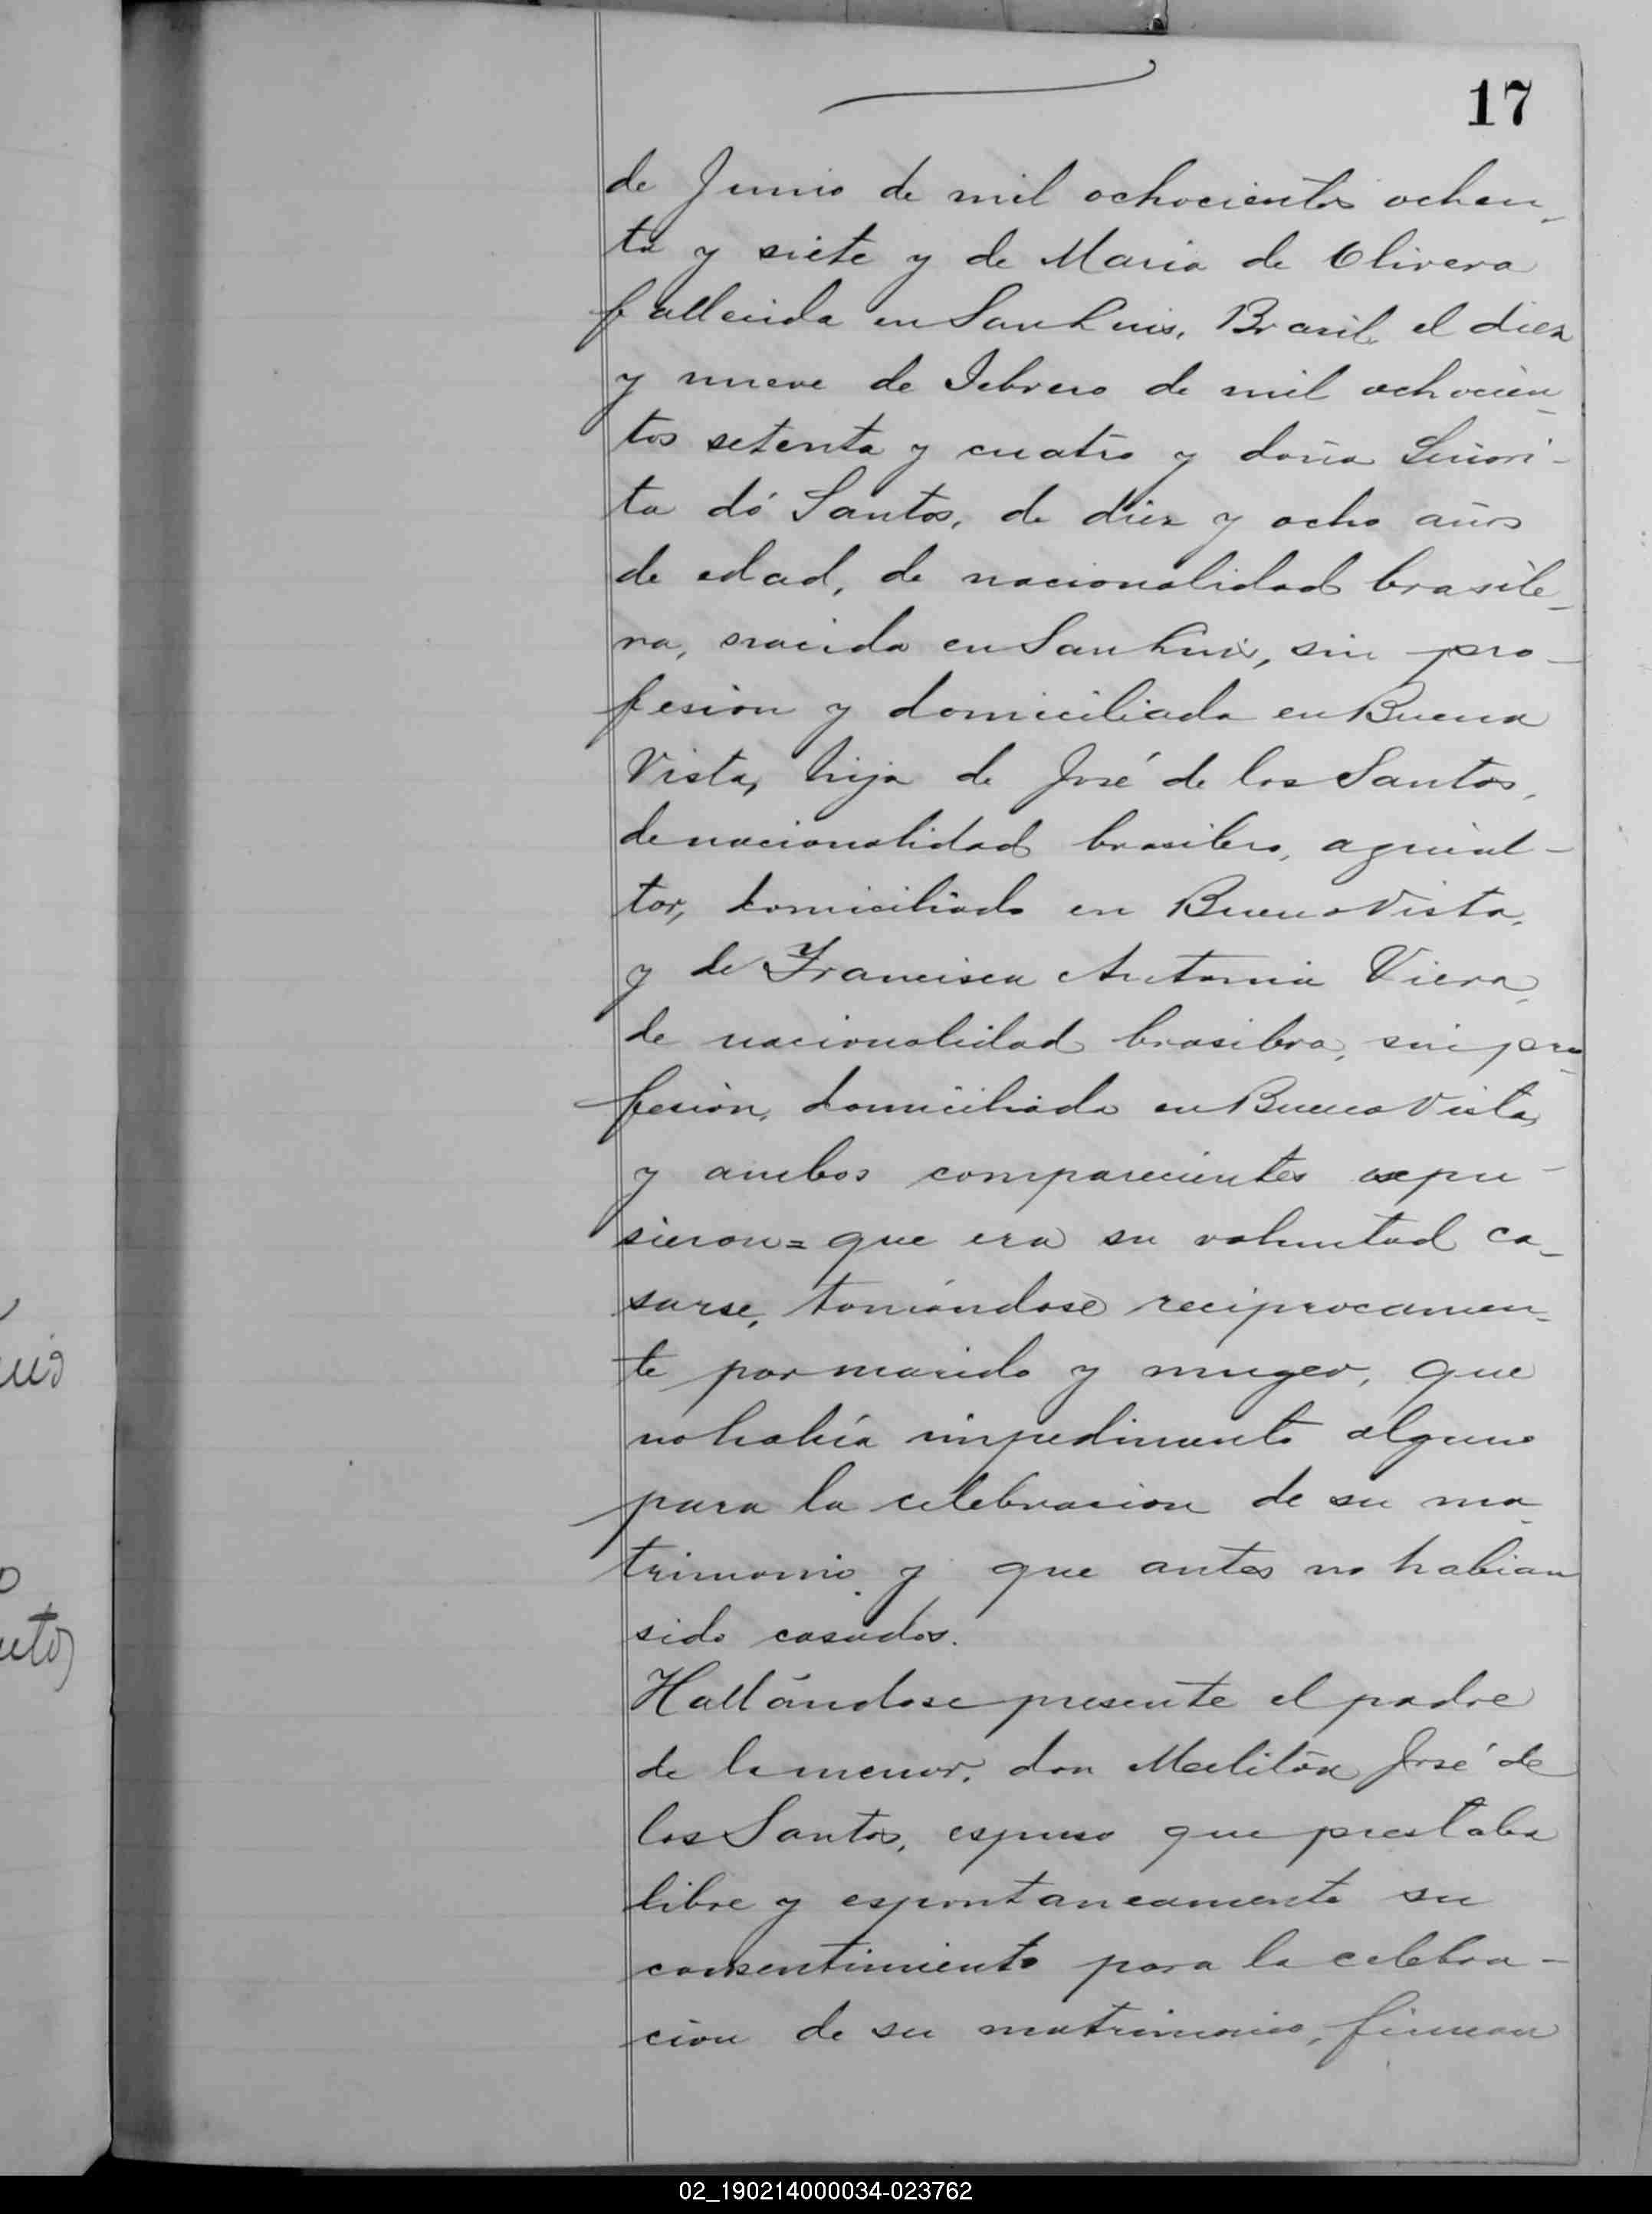 17
de Junio de mil ochocientos ochen-
ta y siete y de Maria de Olivera
fallecida en San Luis, Brasil, el diez
y nueve de Febrero de mil ochocien-
tos setenta y cuatro y doña Señori-
ta dó Santos, de diez y ocho años
de edad, de nacionalidad brasile-
ra, nacida en San Luis, sin pro-
fesion y domiciliada en Buena
Vista, hija de José de los Santos,
de nacionalidad brasilero, agricul-
tor, domiciliado en Buena Vista,
y de Francisca Antonia Viera,
de nacionalidad brasilera, sin pro-
fesion, domiciliada en Buena Vista,
y ambos comparecientes expu-
sieron= que era su voluntad ca-
sarse, tomándose reciprocamen-
te por marido y muger, que
no había impedimento alguno
para la celebracion de su ma-
trimonio y que antes no habian
sido casados.
Hallándose presente el padre
de la menor, don Melitón José de
los Santos, espuso que prestaba
libre y espontaneamente su
consentimiento para la celebra-
cion de su matrimonio, firman
02_190214000034-023762